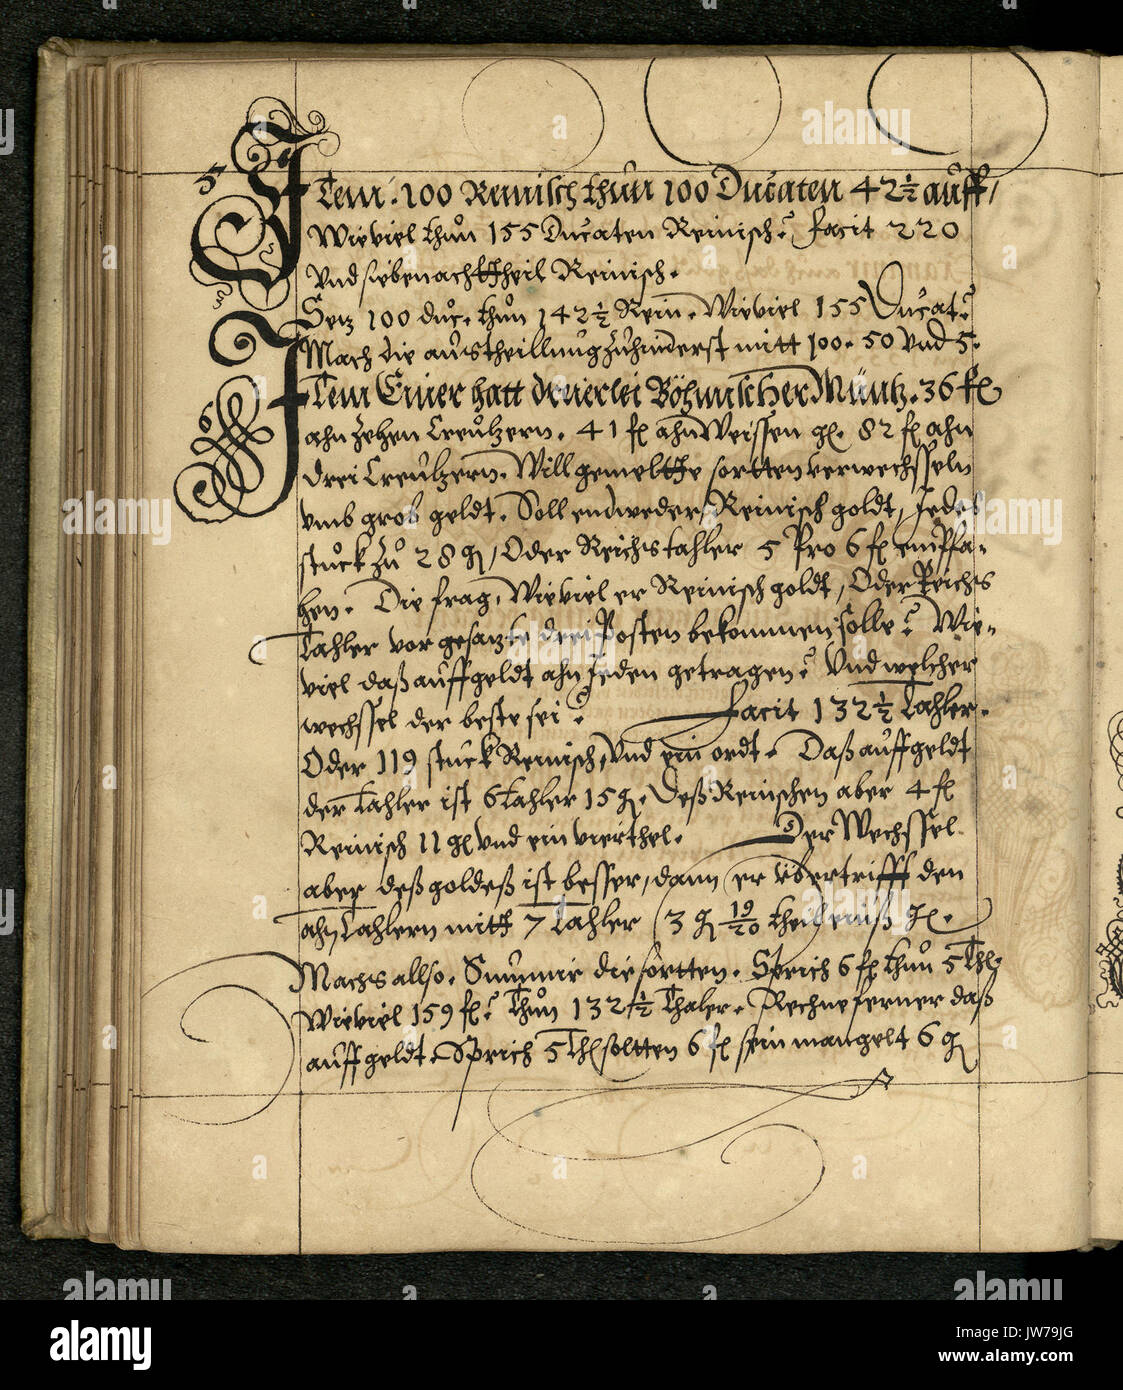 5
ITem. 100 Reinisch thun 100 Ducaten 42 1/2 auff/
Wieviel thun 155 Ducaten Reinisch? facit 220
Vnd siebenachttheil Reinisch.
Setz 100 duc. thun 142 1/2 Rein. Wieviel 155 Ducat?
Mach die austheillung zuhinderst mitt 100. 50 Vnd 5.
6
ITem Einer hatt dreierlei Böhmischer Müntz. 36 fl
ahn zehen Creutzern. 41 fl ahn Weissen gl. 82 fl ahn
drei Creutzern. Will gemeltthe sortten verwechsseln
vmb grob geldt. Soll endweder Reinisch goldt, Jedes
stuck zu 28 gl, Oder Reichstahler 5 Pro 6 fl empfa-
hen. Die frag, Wieviel er Reinisch goldt, Oder Reichs
Tahler vor gesatzte drei Posten bekommen solle? Wie-
viel daß auffgeldt ahn Jeden getragen? Vnd welcher
wechssel der beste sei? facit 132 1/2 Tahler.
Oder 119 stuck Reinisch, Vnd ein ordt. Daß auffgeldt
der Tahler ist 6 Tahler 15 gl. Deß Reinschen aber 4 fl
Reinisch 11 gl Vnd ein vierthel. Der Wechssel
aber deß goldeß ist besser, dann er übertrifft den
ahn Tahlern mitt 7 Tahler 3 gl 19/20 theil einß gl.
Machs allso. Summir die sortten. Sprich 6 fl thun 5 Thl.
Wieviel 159 fl? Thun 132 1/2 Thaler. Rechne ferner daß
auffgeldt. Sprich 5 Thl soltten 6 fl sein mangelt 6 gl
alamy
Image ID: JW79JG
www.alamy.com